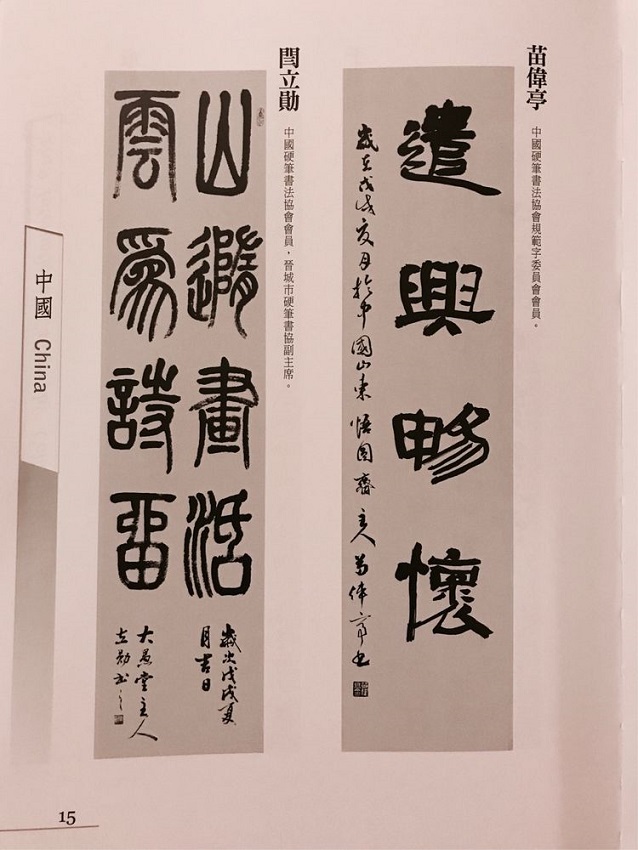 苗偉亭
中國硬筆書法協會規範字委員會會員。
遣興暢懷
歲在戊戌夏月於中國山東悟園齋主人苗偉亭书
閆立勛
中國硬筆書法協會會員，晉城市硬筆書協副主席。
山遊畫活
雲為詩留
歲次戊戌夏
月吉日
大愚堂主人
立勛书
中國 China
15